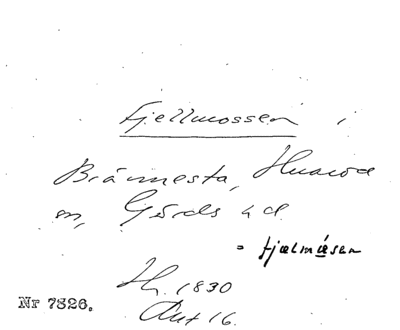 Fjellmossen i
Brännesta, Huaröd
sn, Gärds hd.
= fjælmåsen
Hg. 1830
Akt 16.
Nr 7826.